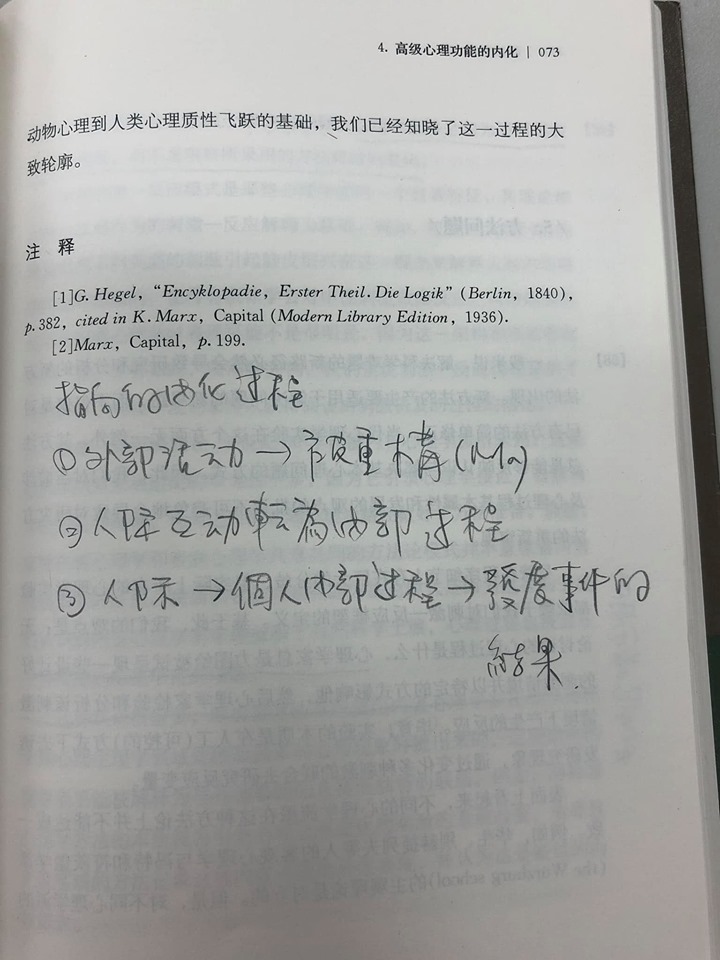 4. 高级心理功能的内化 | 073
动物心理到人类心理质性飞跃的基础，我们已经知晓了这一过程的大
致轮廓。
注 释
[1]G. Hegel, “Encyklopadie, Erster Theil. Die Logik” (Berlin, 1840),
p.382, cited in K. Marx, Capital (Modern Library Edition, 1936).
[2]Marx, Capital, p. 199.
指向的內化过程
①外部活动→被重構
②人际互动轉為內部过程
③人际→個人內部过程→發展事件的
結果.